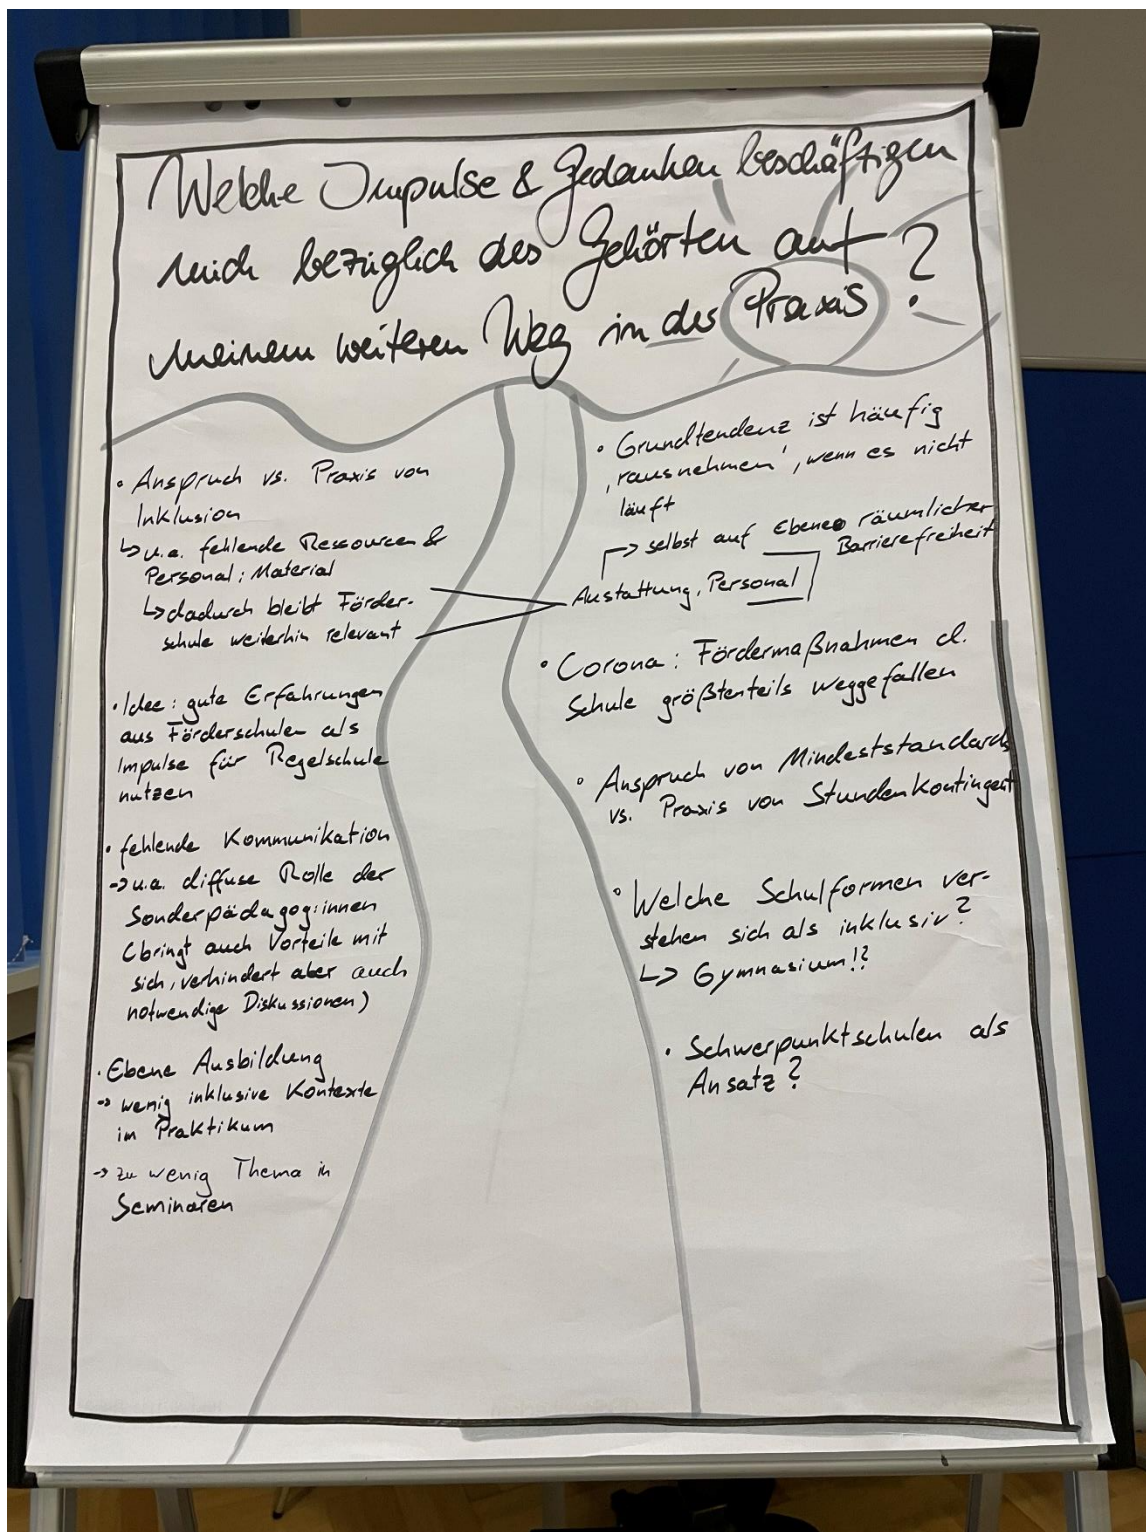 Welche Impulse & Gedanken beschäftigen
mich bezüglich des Gehörten auf
meinem weiteren Weg in der Praxis?
• Anspruch vs. Praxis von
Inklusion
↳ u.a. fehlende Ressourcen &
Personal; Material
↳ dadurch bleibt Förder-
schule weiterhin relevant
• Idee: gute Erfahrungen
aus Förderschulen als
Impulse für Regelschule
nutzen
• fehlende Kommunikation
-> u.a. diffuse Rolle der
Sonderpädagog:innen
(bringt auch Vorteile mit
sich, verhindert aber auch
notwendige Diskussionen)
• Ebene Ausbildung
-> wenig inklusive Kontexte
im Praktikum
-> zu wenig Thema in
Seminaren
• Grundtendenz ist häufig
'rausnehmen', wenn es nicht
läuft
-> selbst auf Ebene räumlicher
Barrierefreiheit
Austattung, Personal
• Corona: Fördermaßnahmen d.
Schule größtenteils weggefallen
• Anspruch von Mindeststandards
vs. Praxis von Stundenkontingent
• Welche Schulformen ver-
stehen sich als inklusiv?
↳ Gymnasium!?
• Schwerpunktschulen als
Ansatz?